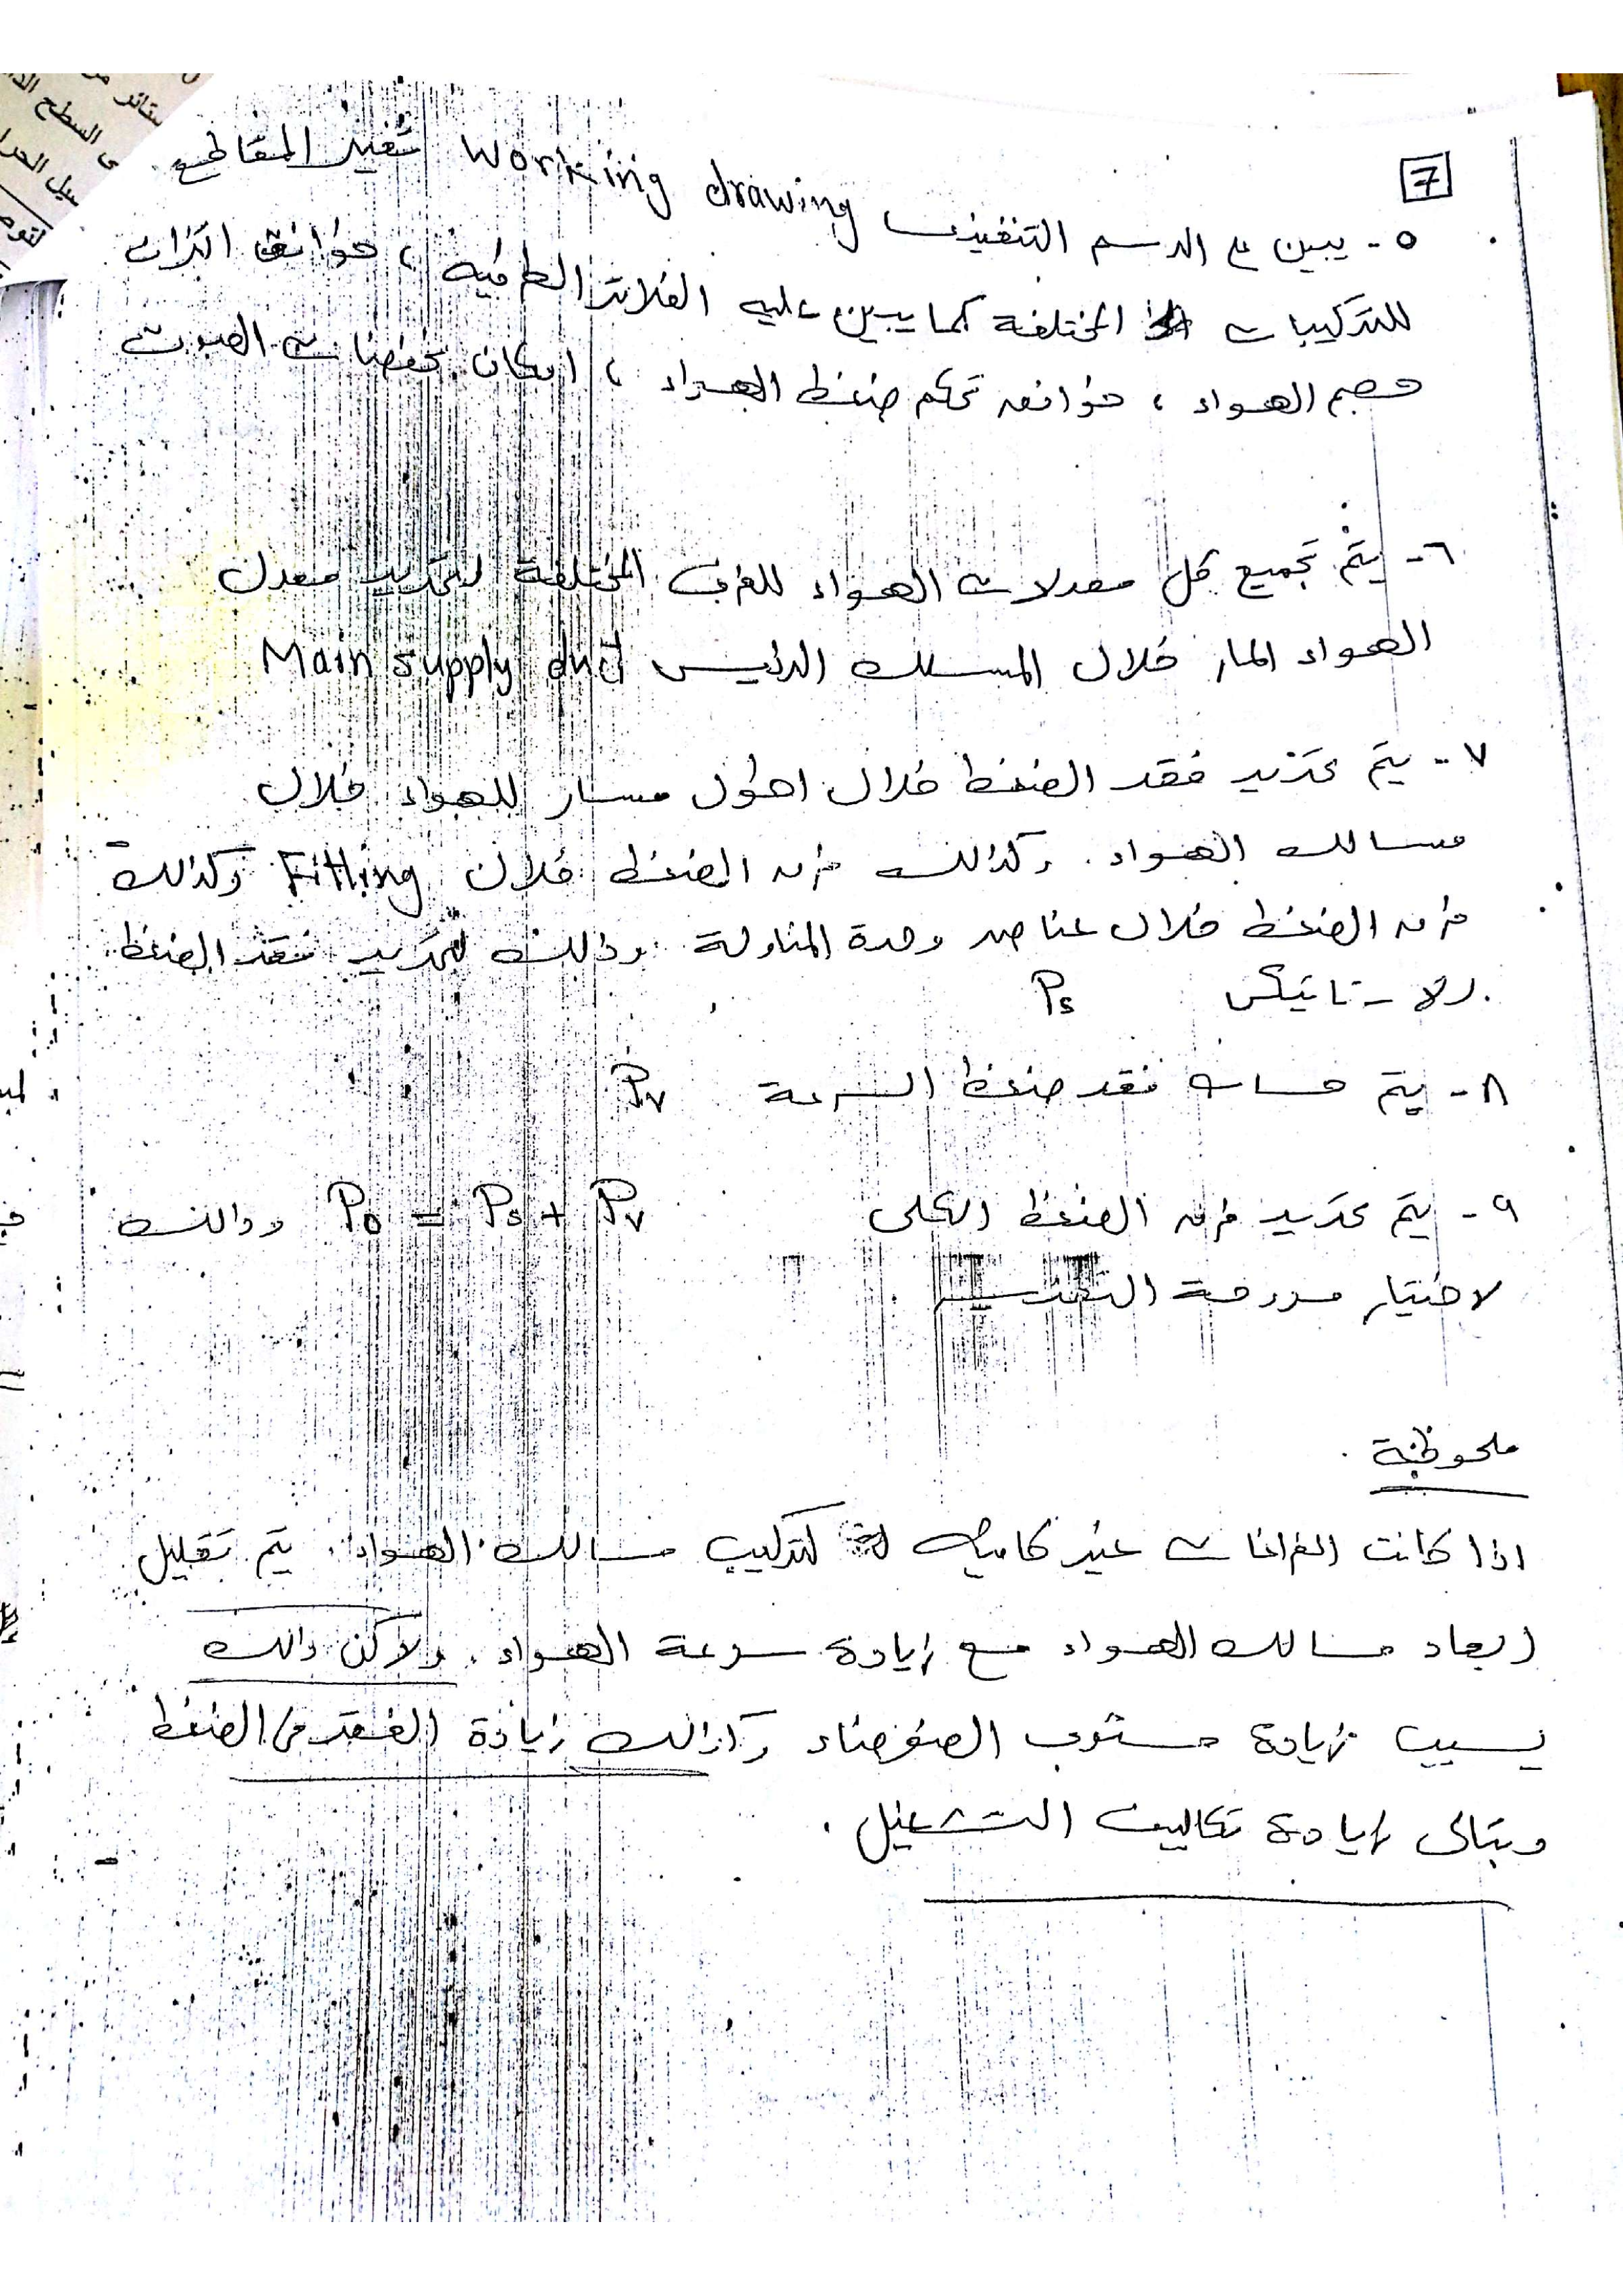 7
٥- يبين على الرسم التنفيذى working drawing تنفيذ المقاطع
للتركيبات المختلفة كما يبين عليه الفلاتر الطرفيه ، خوانق اتزان
حجم الهواء ، خوانق تحكم ضغط الهواء ، امكان مخفضات الصوت
٦- يتم تجميع كل معدلات الهواء للغرف المختلفة لتحديد معدل
الهواء المار خلال المسلك الرئيسى Main supply duct
٧- يتم تحديد فقد الضغط خلال اطول مسار للهواء خلال
مسالك الهواء . وكذلك فرق الضغط خلال Fitting وكذلك
فرق الضغط خلال عناصر وحدة المناولة وذلك لتحديد فقد الضغط
الاستاتيكى Ps
٨- يتم حساب فقد ضغط السرعة Pv
٩- يتم تحديد فرق الضغط الكلى P0 = Ps + Pv وذالك
لاختيار مروحة التكييف .
ملحوظة
اذا كانت الفراغات غير كافية لتركيب مسالك الهواء . يتم تقليل
ابعاد مسالك الهواء مع زيادة سرعة الهواء . ولاكن ذالك
يسبب زيادة مستوى الضوضاء وكذالك زيادة الفقد فى الضغط
وبتالى زيادة تكاليف التشغيل .